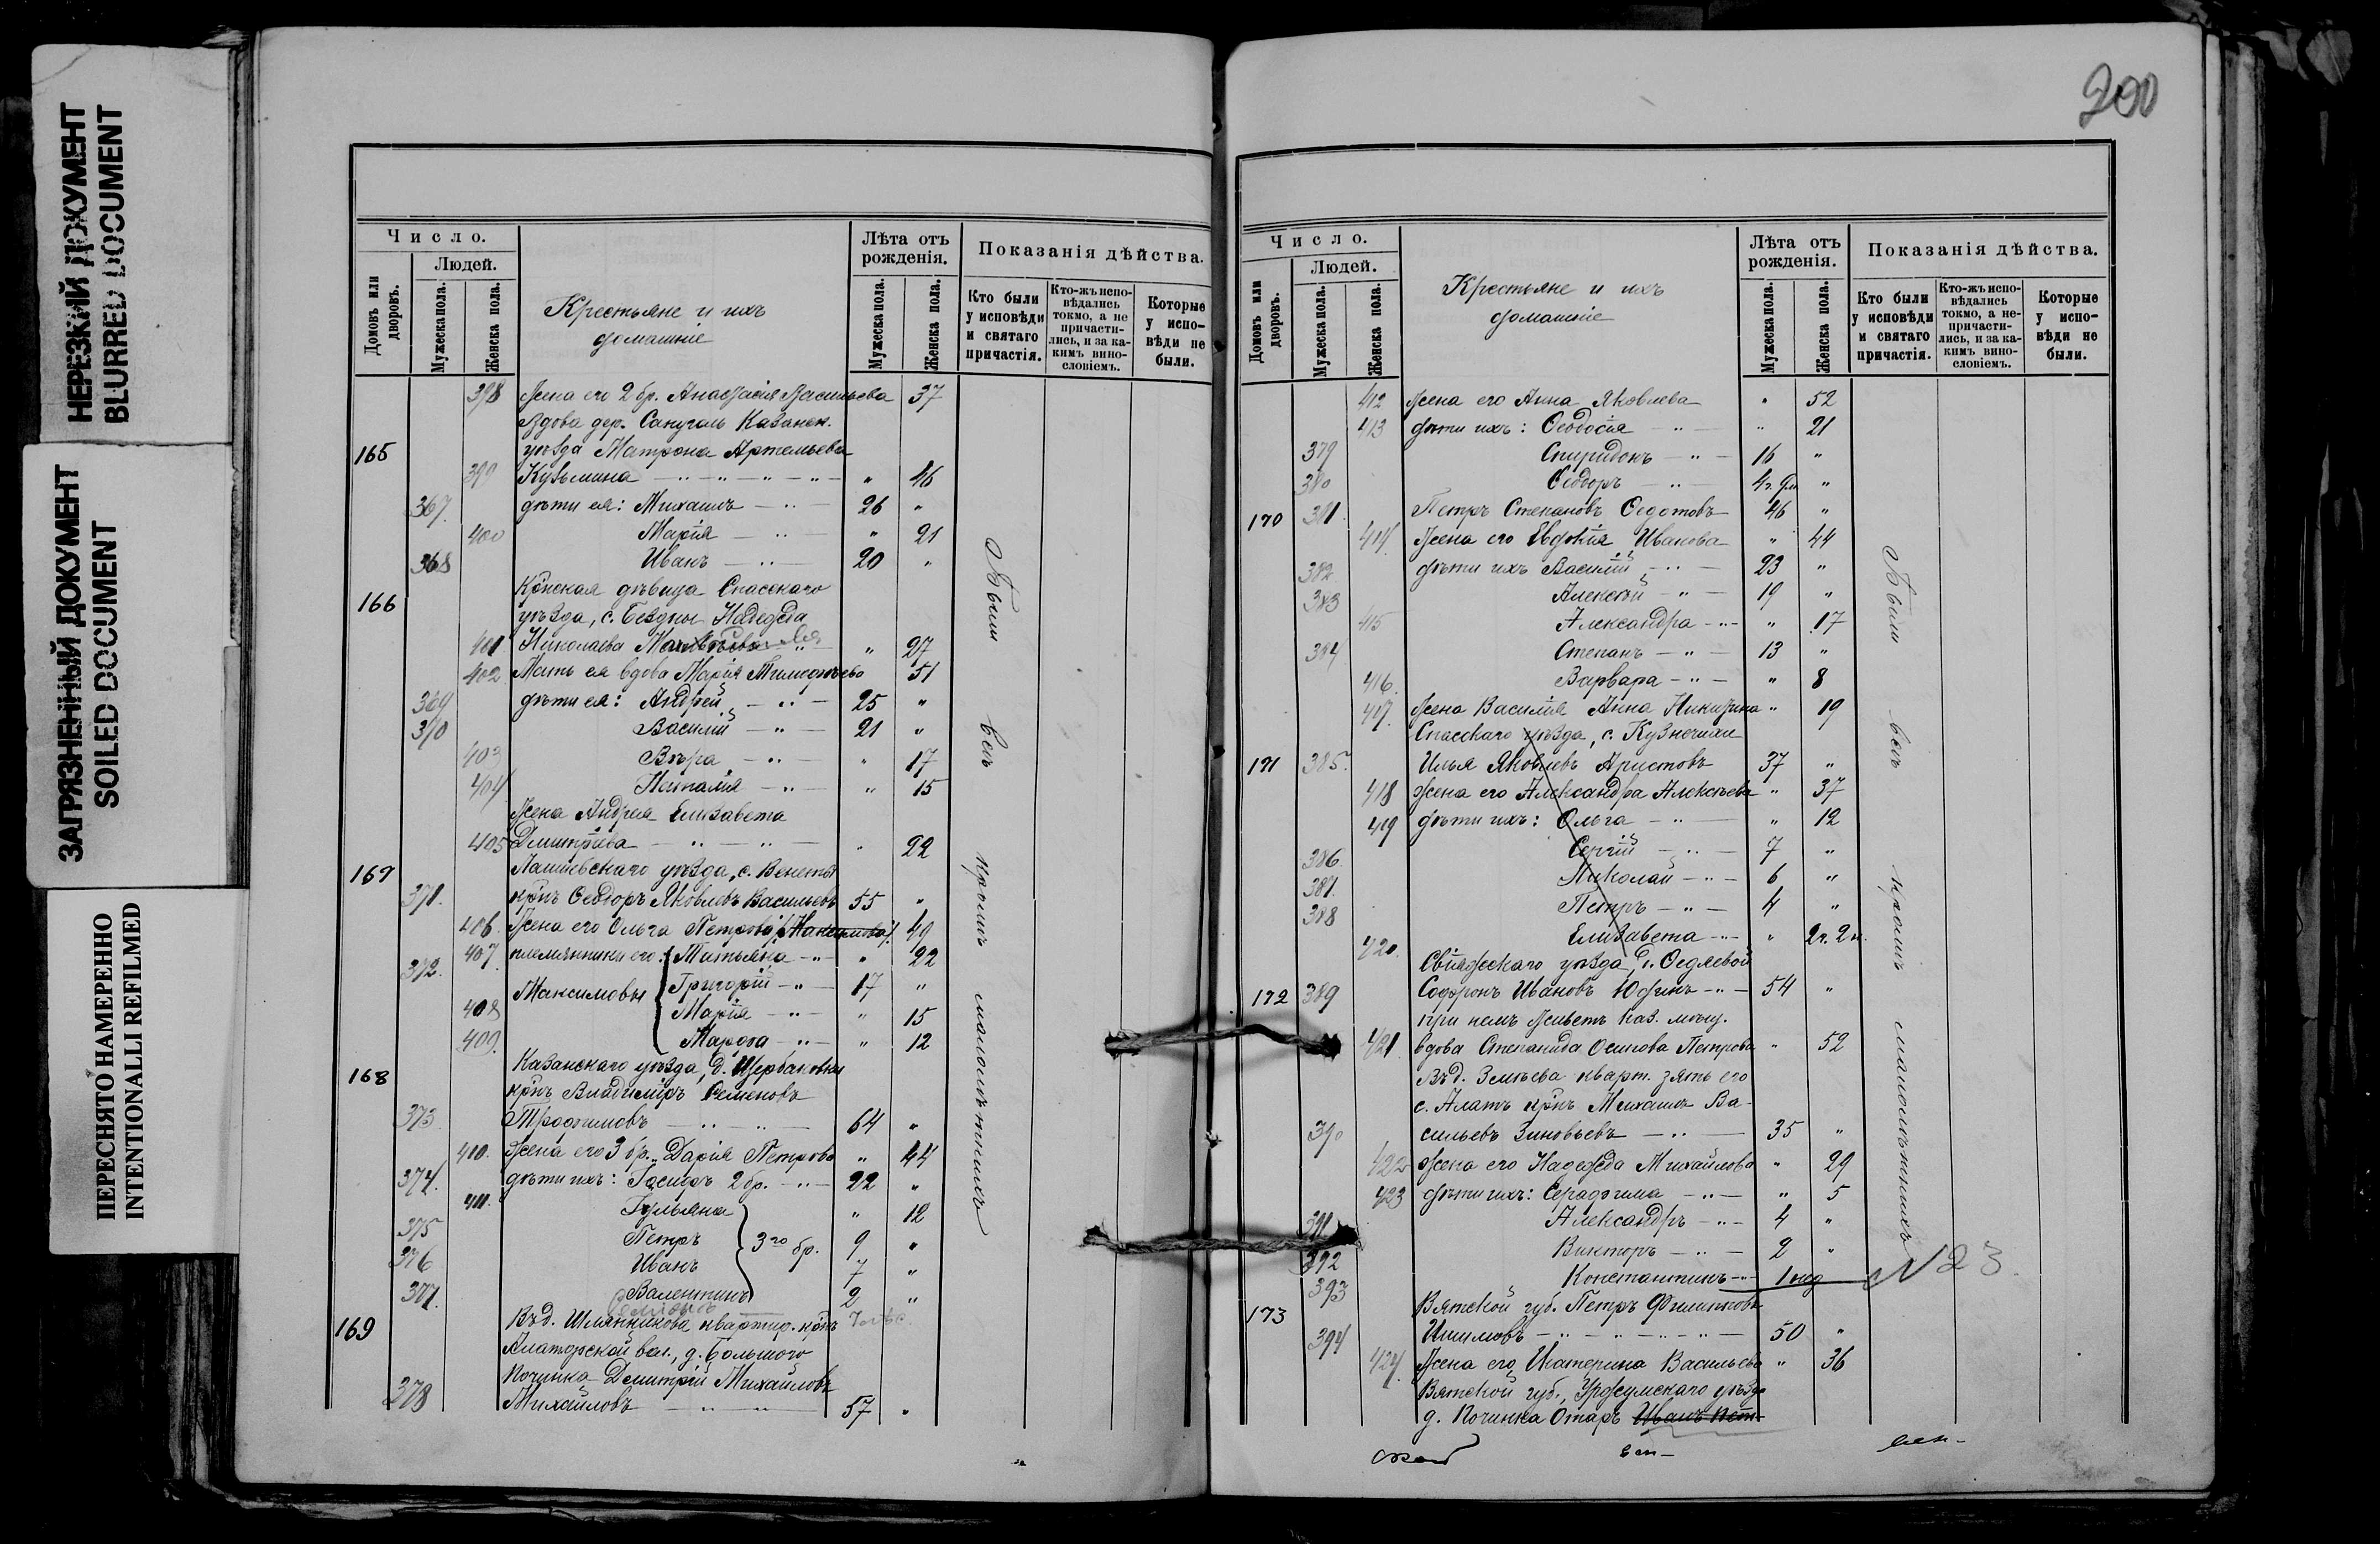 НЕРЕЗКИЙ ДОКУМЕНТ
BLURRED DOCUMENT
ЗАГРЯЗНЕННЫЙ ДОКУМЕНТ
SOILED DOCUMENT
ПЕРЕСНЯТО НАМЕРЕННО
INTENTIONALLI REFILMED
Число.
Людей.
Домовъ или дворовъ.
Мужеска пола.
Женска пола.
Крестьяне и ихъ
домашніе
Лѣта отъ рожденія.
Мужеска пола.
Женска пола.
Показанія дѣйства.
Кто были у исповѣди и святаго причастія.
Кто-жъ исповѣдались токмо, а не причастились, и за какимъ винословіемъ.
Которые у исповѣди не были.
398 Жена его 2 бр. Анастасія Васильева 37
Вдова дер. Санугаль Казанск.
165 уѣзда Матрона Артемьева
399 Кузьмина — " — " — " — " — " 46
367. дѣти ея: Михаилъ — " — 26 "
400 Марія — " — " 21
368 Иванъ — " — 20 "
Кр̃нская дѣвица Спасскаго
166 уѣзда, с. Бездны Надежда
401 Николаева " 27
402 Мать ея вдова Марія Тимофѣева 51
369 дѣти ея: Андрей — " — 25 "
370 Василій — " — 21 "
403 Вѣра — " — " 17
404 Наталія — " — " 15
Жена Андрея Елизавета
405 Дмитріева — " — " — " 22
169 Лаишевскаго уѣзда, с. Венеты
371. кр̃нъ Ѳеодоръ Яковлевъ Васильевъ 55 "
406. Жена его Ольга Петрова 49
407. племянники его: Татьяна — " — " 22
372. Максимовы Григорій — " — 17 "
408 Марія — " — " 15
409. Марѳа — " — " 12
Казанскаго уѣзда, д. Щербаковки
168 кр̃нъ Владиміръ Семеновъ
373 Трофимовъ — " — " — 64 "
410. Жена его 3 бр. Дарія Петрова " 44
374. дѣти ихъ: Іосифъ 2 бр. — " — 22 "
411. Гульяна " 12
375 Петръ 3го бр. 9 "
376 Иванъ 7 "
377. Валентинъ 2 "
169 Въ д. Шмянникова квартир. кр̃нъ
Алаторской вол., д. Большого
Починка Димитрій Михайловъ
378 Михайловъ — " — " 57 "
Были
всѣ
кромѣ
малолѣтнихъ
200
Число.
Людей.
Домовъ или дворовъ.
Мужеска пола.
Женска пола.
Крестьяне и ихъ
домашніе
Лѣта отъ рожденія.
Мужеска пола.
Женска пола.
Показанія дѣйства.
Кто были у исповѣди и святаго причастія.
Кто-жъ исповѣдались токмо, а не-причастились, и за какимъ винословіемъ.
Которые у исповѣди не были.
412 Жена его Анна Яковлева " 52
413 дѣти ихъ: Ѳеодосія — " — " 21
379 Спиридонъ — " — 16 "
380 Ѳеодоръ — " — "
170 381 Петръ Степановъ Ѳедотовъ 46 "
414 Жена его Евдокія Иванова " 44
382 дѣти ихъ Василій — " — 23 "
383 Алексѣй — " — 19 "
415 Александра — " — " 17
384 Степанъ — " — 13 "
416. Варвара — " — " 8
417. Жена Василія Анна Никитина " 19
Спасскаго уѣзда, с. Кузнечихи
171 385. Илья Яковлевъ Аристовъ 37 "
418 Жена его Александра Алексѣева " 37
419 дѣти ихъ: Ольга — " — " 12
386. Сергій — " — 7 "
387. Николай — " — 6 "
388 Петръ — " — 4 "
420. Елизавета — " — " 2 г. 2 м.
Свіяжскаго уѣзда, д. Ѳедяевой
172 389 Софронъ Ивановъ Юдинъ — " — 54 "
при немъ живетъ Каз. мѣщ.
421 вдова Степанида Осипова Петрова " 52
Въ д. Зелѣева кварт. зять его
с. Алатъ кр̃нъ Михаилъ Ва-
390 сильевъ Зиновьевъ — " — 35 "
422 Жена его Надежда Михайлова " 29
423 дѣти ихъ: Серафима — " — " 5
391 Александръ — " — 4 "
392 Викторъ — " — 2 "
393 Константинъ — " — 1 нед N 23
173 Вятской губ. Петръ Филипповъ
394 Ишимовъ — " — " — " — " — 50 "
424. Жена его Екатерина Васильева " 36
Вятской губ., Уржумскаго уѣзда
д. Починка Отаръ Иванъ Пет-
Были
всѣ
кромѣ
малолѣтнихъ